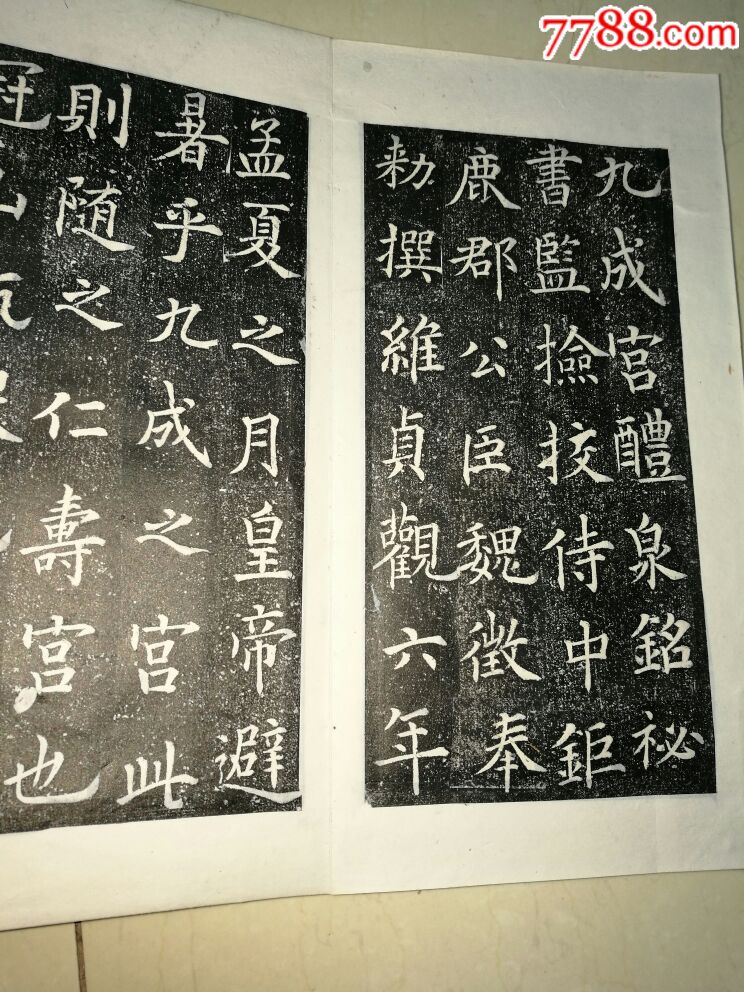 7788.com
九成宫醴泉銘祕
書監撿挍侍中鉅
鹿郡公臣魏徵奉
勑撰維貞觀六年
孟夏之月皇帝避
暑乎九成之宫此
則随之仁壽宫也
冠山